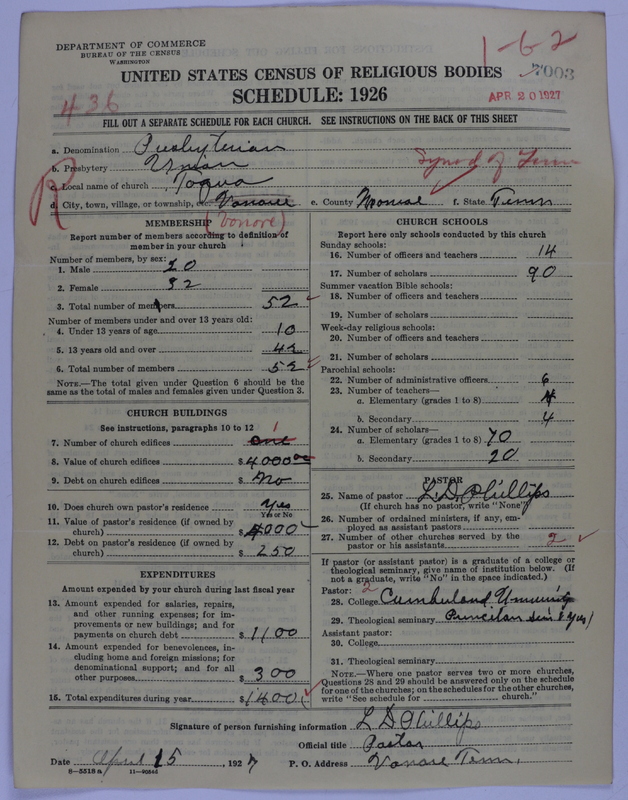 DEPARTMENT OF COMMERCE
BUREAU OF THE CENSUS
WASHINGTON
1-62
7003
UNITED STATES CENSUS OF RELIGIOUS BODIES
SCHEDULE: 1926
436
APR 20 1927
FILL OUT A SEPARATE SCHEDULE FOR EACH CHURCH. SEE INSTRUCTIONS ON THE BACK OF THIS SHEET
a. Denomination Presbyterian
b. Presbytery Union
Synod of Tenn
R
c. Local name of church Toqua
d. City, town, village, or township, etc. Vonore e. County Monroe f. State Tenn
(Vonore)
MEMBERSHIP
Report number of members according to definition of member in your church
Number of members, by sex:
1. Male 20
2. Female 32
3. Total number of members 52
Number of members under and over 13 years old:
4. Under 13 years of age 10
5. 13 years old and over 42
6. Total number of members 52
NOTE.—The total given under Question 6 should be the same as the total of males and females given under Question 3.
CHURCH BUILDINGS
See instructions, paragraphs 10 to 12
7. Number of church edifices one 1
8. Value of church edifices $ 4000 00
9. Debt on church edifices $ No
10. Does church own pastor's residence Yes
Yes or No
11. Value of pastor's residence (if owned by church) $ 4000
12. Debt on pastor's residence (if owned by church) $ 250
EXPENDITURES
Amount expended by your church during last fiscal year
13. Amount expended for salaries, repairs, and other running expenses; for improvements or new buildings; and for payments on church debt $ 1100
14. Amount expended for benevolences, including home and foreign missions; for denominational support; and for all other purposes $ 300
15. Total expenditures during year $ 1400
CHURCH SCHOOLS
Report here only schools conducted by this church
Sunday schools:
16. Number of officers and teachers 14
17. Number of scholars 90
Summer vacation Bible schools:
18. Number of officers and teachers
19. Number of scholars
Week-day religious schools:
20. Number of officers and teachers
21. Number of scholars
Parochial schools:
22. Number of administrative officers 6
23. Number of teachers—
a. Elementary (grades 1 to 8) 4
b. Secondary 4
24. Number of scholars—
a. Elementary (grades 1 to 8) 70
b. Secondary 20
PASTOR
25. Name of pastor L. D. Phillips
(If church has no pastor, write "None")
26. Number of ordained ministers, if any, employed as assistant pastors
27. Number of other churches served by the pastor or his assistants 2
If pastor (or assistant pastor) is a graduate of a college or theological seminary, give name of institution below. (If not a graduate, write "No" in the space indicated.)
Pastor: 2
28. College Cumberland University
29. Theological seminary Princeton
Assistant pastor:
30. College
31. Theological seminary
NOTE.—Where one pastor serves two or more churches, Questions 28 and 29 should be answered only on the schedule for one of the churches; on the schedules for the other churches, write "See schedule for church."
Signature of person furnishing information L D Phillips
Official title Pastor
Date April 15, 1927 P. O. Address Vonore Tenn.
8—5518 a